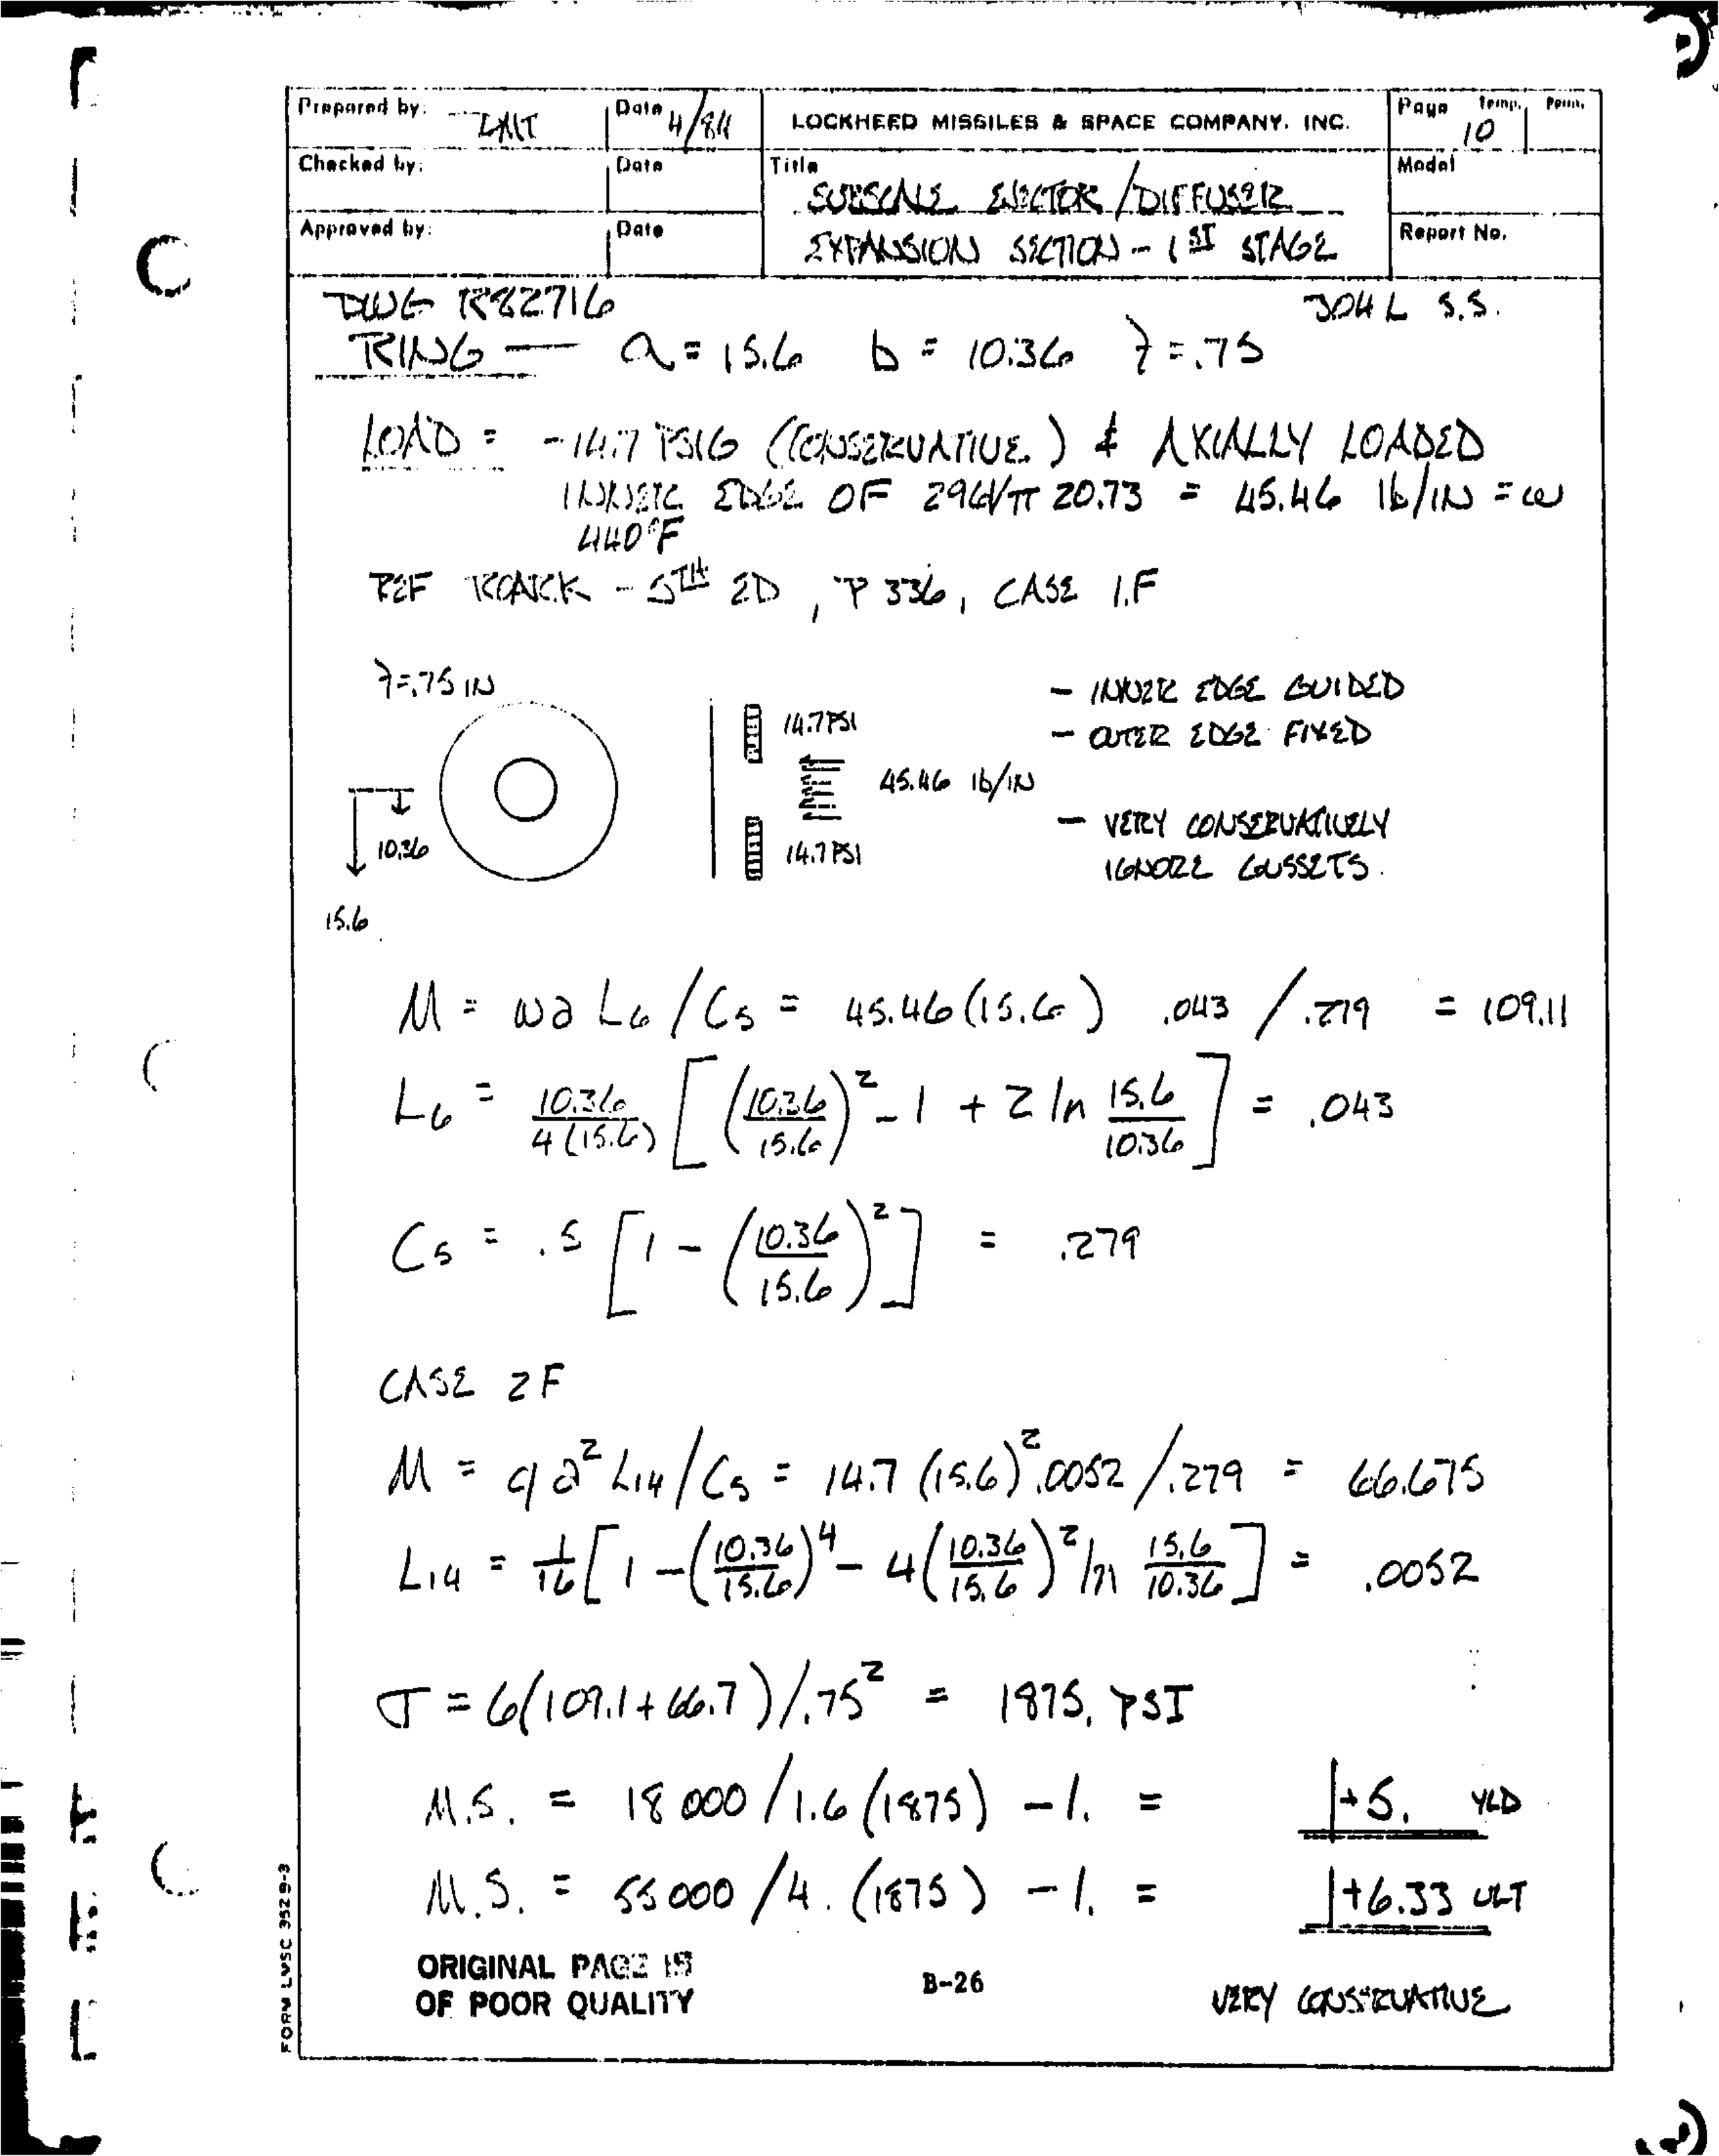 Prepared by: LMT Date 4/84 LOCKHEED MISSILES & SPACE COMPANY, INC. Page Temp. Perm.
10
Checked by: Date Title Model
SUBSCALE EJECTOR/DIFFUSER
Approved by: Date EXPANSION SECTION - 1ST STAGE Report No.
DWG R82716 304L S.S.
RING — a = 15.6 b = 10.36 t = .75
LOAD = -14.7 PSIG (CONSERVATIVE) & AXIALLY LOADED
INNER EDGE OF 2961/π 20.73 = 45.46 lb/IN = ω
440°F
REF ROARK - 5TH ED, P 336, CASE 1.F
t=.75 IN
- INNER EDGE GUIDED
14.7 PSI
- OUTER EDGE FIXED
45.46 lb/IN
- VERY CONSERVATIVELY
10.36
14.7 PSI
IGNORE GUSSETS.
15.6
M = ωa L6/C5 = 45.46(15.6) .043/.279 = 109.11
L6 = 10.36/4(15.6) [(10.36/15.6)² - 1 + 2 ln 15.6/10.36] = .043
C5 = .5 [1 - (10.36/15.6)²] = .279
CASE 2F
M = q a² L14/C5 = 14.7 (15.6)² .0052/.279 = 66.675
L14 = 1/16 [1 - (10.36/15.6)⁴ - 4(10.36/15.6)² ln 15.6/10.36] = .0052
σ = 6(109.1+66.7)/.75² = 1875. PSI
M.S. = 18000/1.6(1875) - 1. = +5. YLD
M.S. = 55000/4.(1875) - 1. = +6.33 ULT
ORIGINAL PAGE IS
OF POOR QUALITY
B-26
VERY CONSERVATIVE
FORM LMSC 3529-3